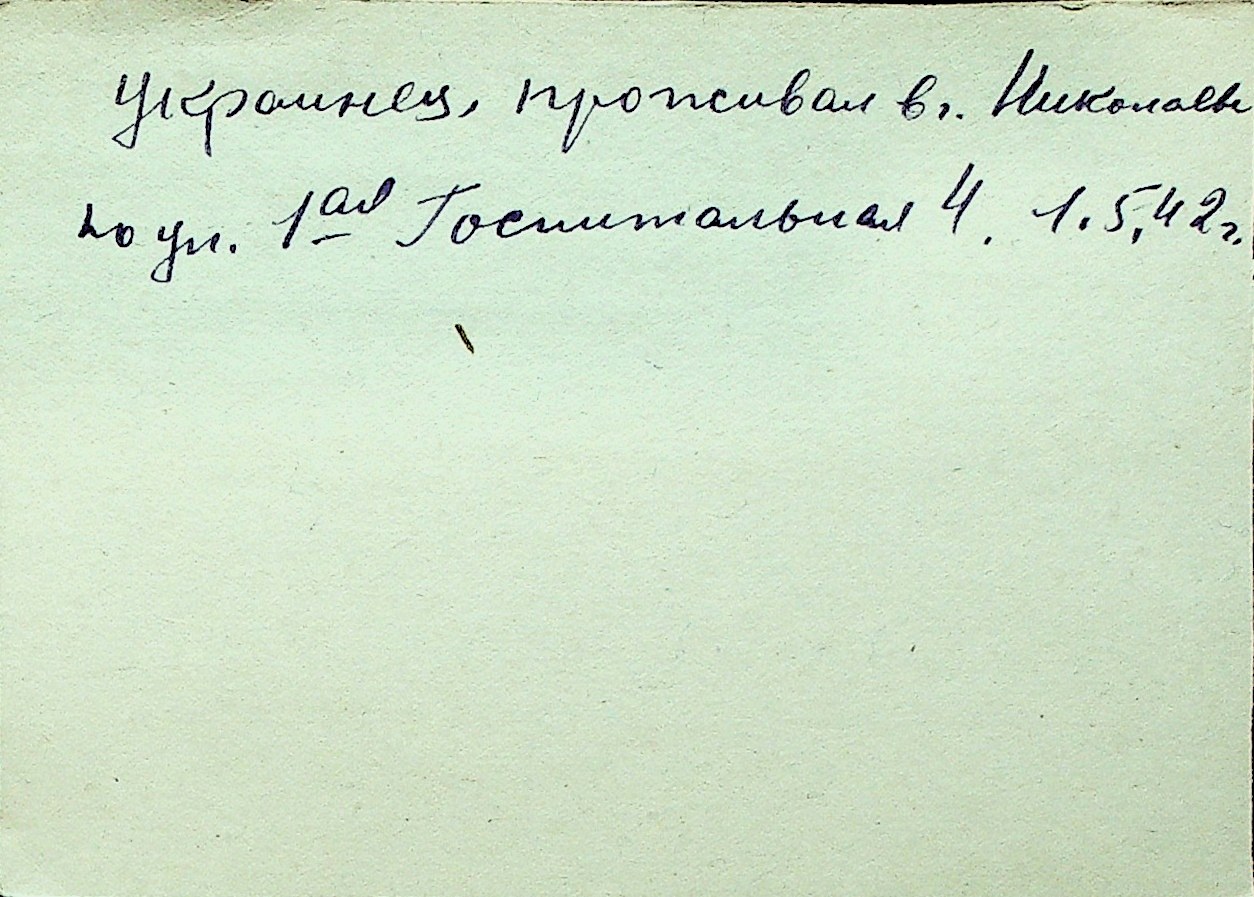 Украинец, проживал в г. Николаеве
по ул. 1ая Госпитальная 4. 1.5.42г.